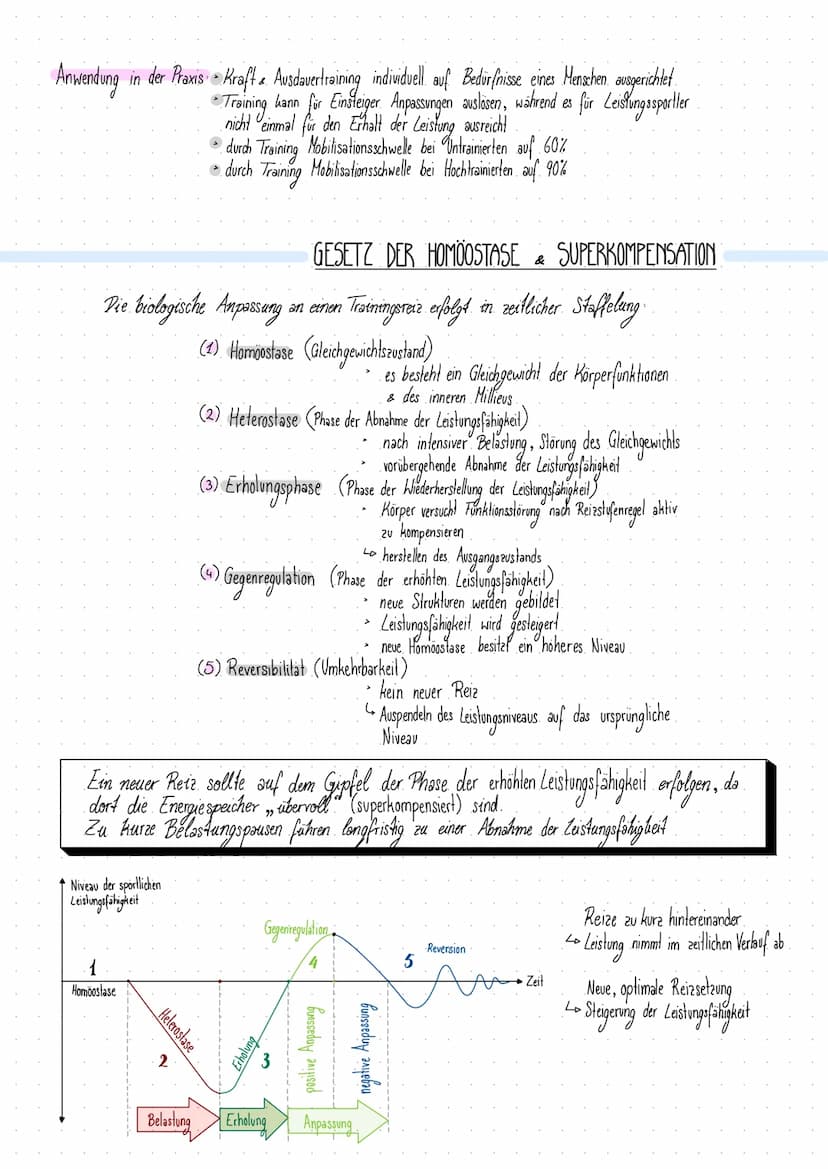 Anwendung in der Praxis: • Kraft & Ausdauertraining individuell auf Bedürfnisse eines Menschen ausgerichtet
• Training kann für Einsteiger Anpassungen auslösen, während es für Leistungssportler
nicht einmal für den Erhalt der Leistung ausreicht
• durch Training Mobilisationsschwelle bei Untrainierten auf 60%
• durch Training Mobilisationsschwelle bei Hochtrainierten auf 90%
GESETZ DER HOMÖOSTASE & SUPERKOMPENSATION
Die biologische Anpassung an einen Trainingsreiz erfolgt in zeitlicher Staffelung:
(1) Homöostase (Gleichgewichtszustand)
‣ es besteht ein Gleichgewicht der Körperfunktionen
& des inneren Millieus
(2) Heterostase (Phase der Abnahme der Leistungsfähigkeit)
‣ nach intensiver Belastung, Störung des Gleichgewichts
‣ vorübergehende Abnahme der Leistungsfähigkeit
(3) Erholungsphase (Phase der Wiederherstellung der Leistungsfähigkeit)
‣ Körper versucht Funktionsstörung nach Reizstufenregel aktiv
zu kompensieren
↳ herstellen des Ausgangszustands
(4) Gegenregulation (Phase der erhöhten Leistungsfähigkeit)
‣ neue Strukturen werden gebildet
‣ Leistungsfähigkeit wird gesteigert
‣ neue Homöostase besitzt ein höheres Niveau
(5) Reversibilität (Umkehrbarkeit)
‣ kein neuer Reiz
↳ Auspendeln des Leistungsniveaus auf das ursprüngliche
Niveau
Ein neuer Reiz sollte auf dem Gipfel der Phase der erhöhten Leistungsfähigkeit erfolgen, da
dort die Energiespeicher „übervoll" (superkompensiert) sind.
Zu kurze Belastungspausen führen langfristig zu einer Abnahme der Leistungsfähigkeit
Niveau der sportlichen
Leistungsfähigkeit
1
Homöostase
Heterostase
2
Erholung
3
Gegenregulation
4
positive Anpassung
negative Anpassung
5
Reversion
Zeit
Belastung
Erholung
Anpassung
Reize zu kurz hintereinander
↳ Leistung nimmt im zeitlichen Verlauf ab
Neue, optimale Reizsetzung
↳ Steigerung der Leistungsfähigkeit